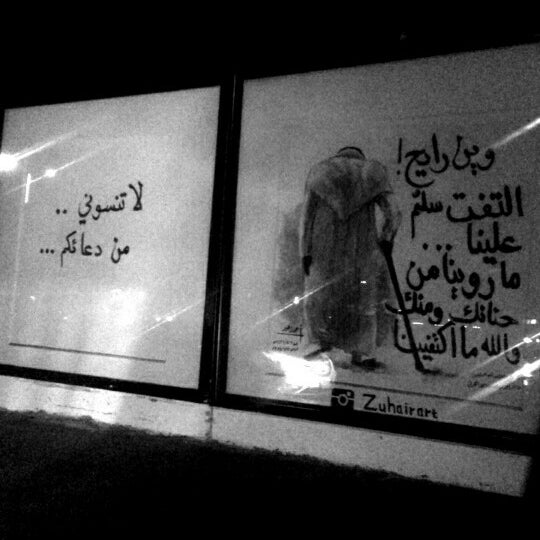 لا تنسوني ..
من دعائكم ...
وين رايح !
التفت سلم
علينا ...
ما روينا من
حنانك ومنك
والله ما اكتفينا
Zuhairart